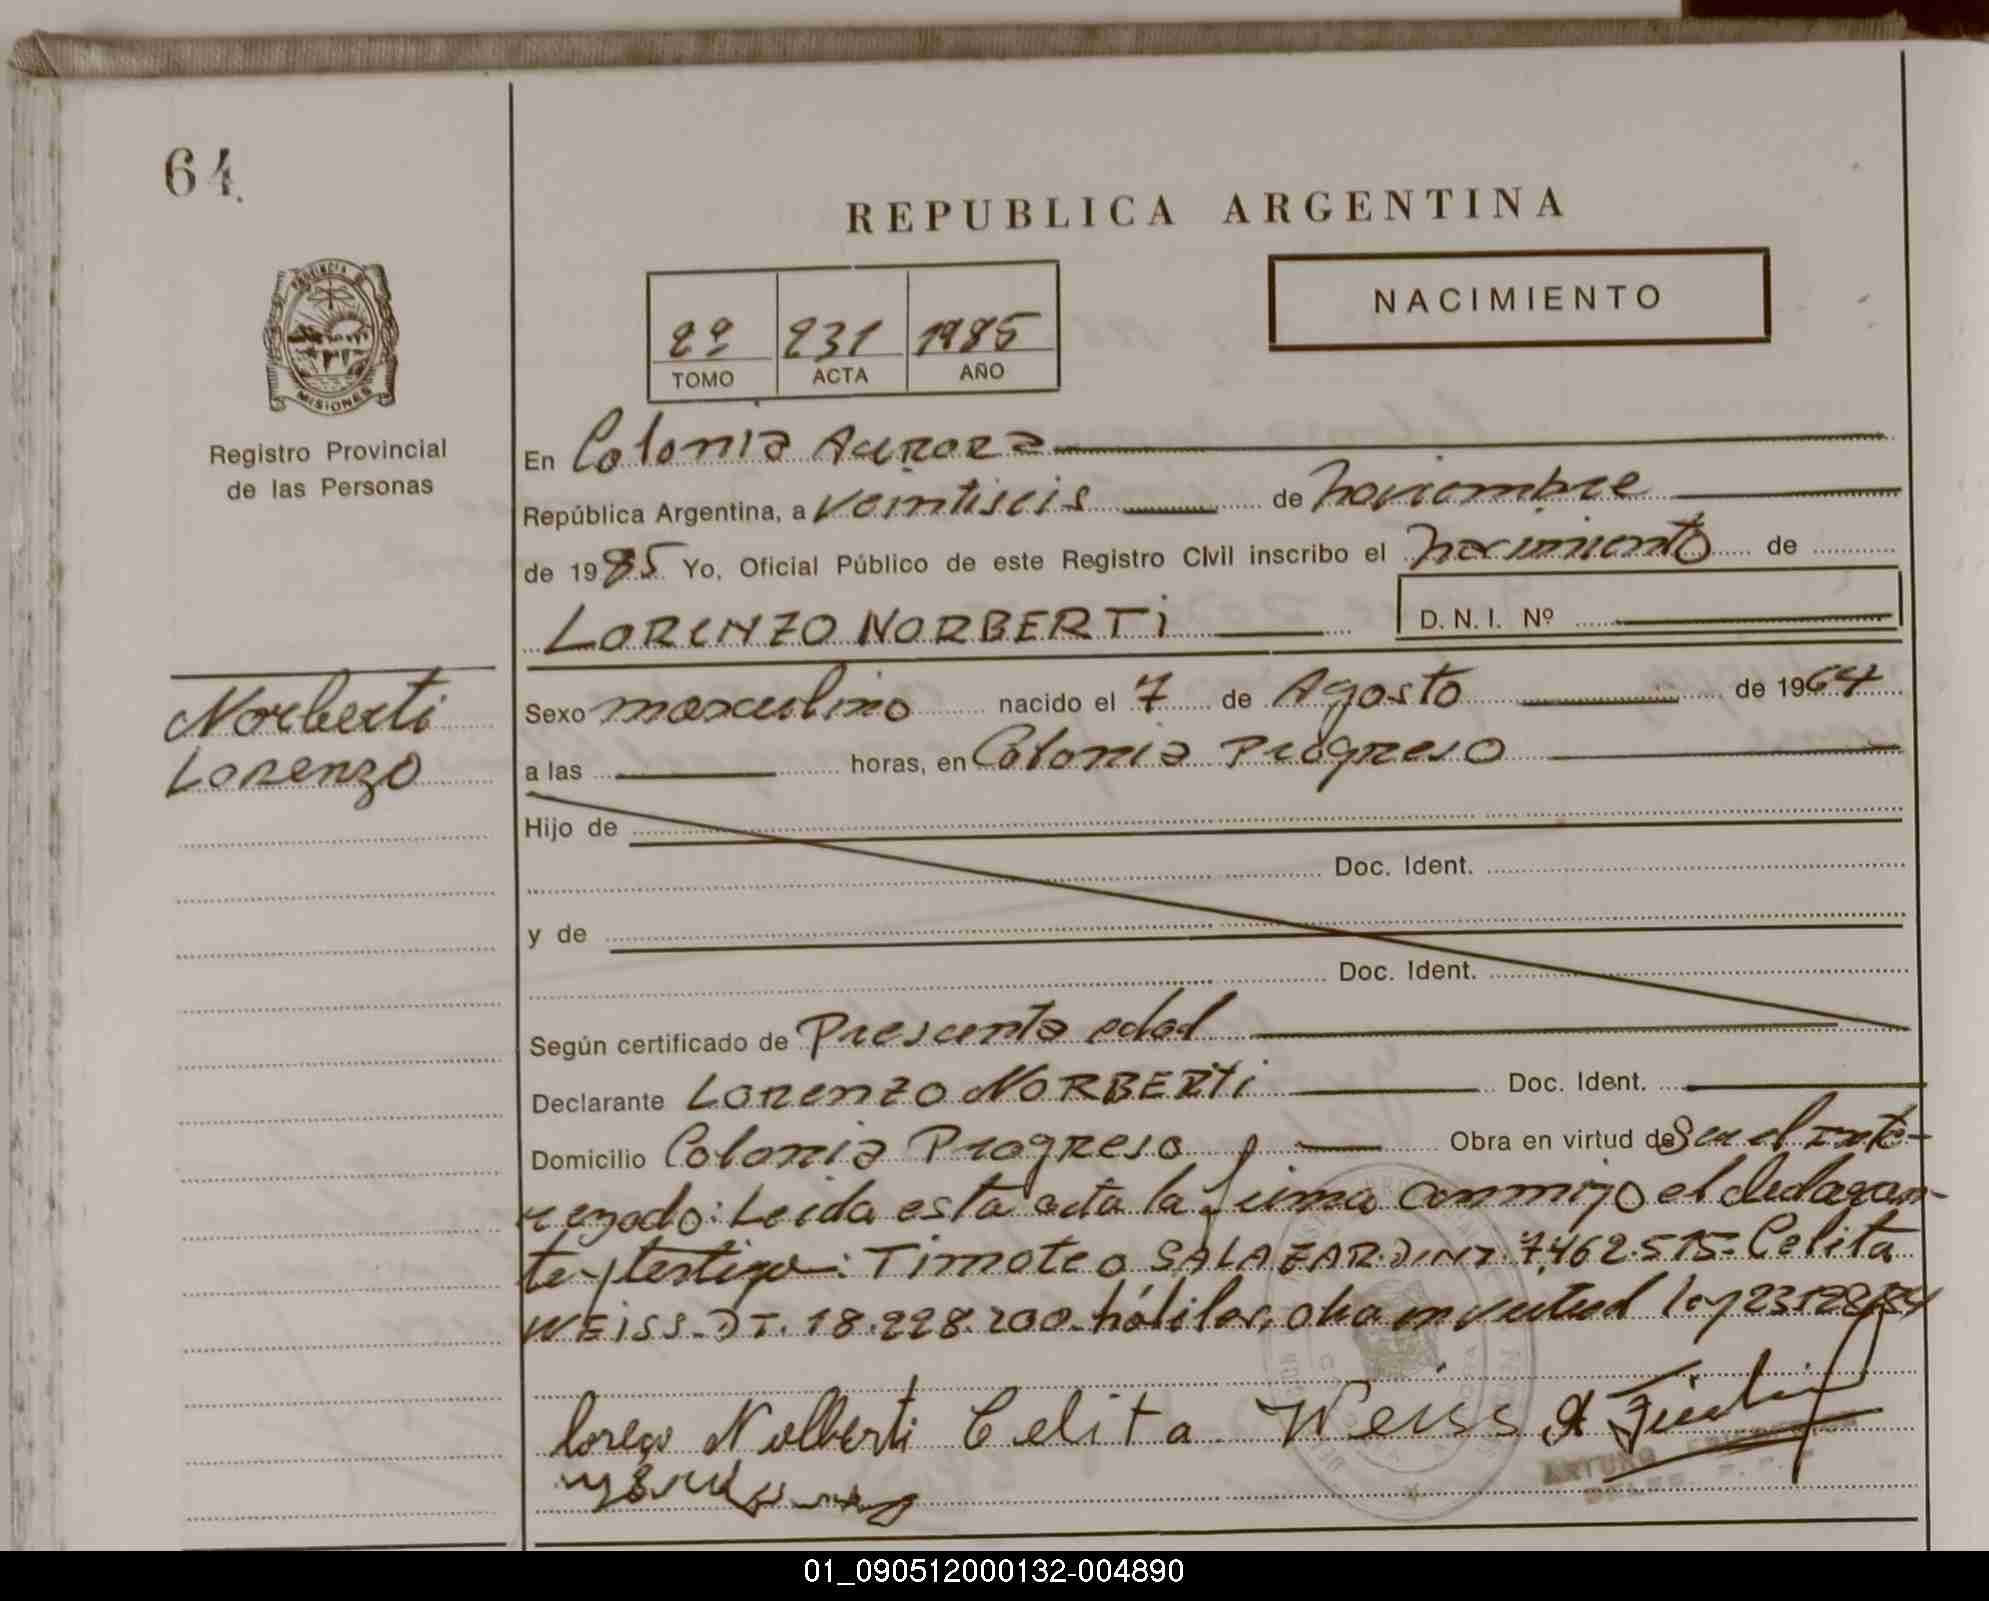 64
REPUBLICA ARGENTINA
NACIMIENTO
2º 231 1985
TOMO ACTA AÑO
PROVINCIA DE
MISIONES
Registro Provincial
de las Personas
En Colonia Aurora
República Argentina, a veintiseis de noviembre
de 1985 Yo, Oficial Público de este Registro Civil inscribo el nacimiento de
LORENZO NORBERTi D. N. I. Nº
Norberti
Lorenzo
Sexo masculino nacido el 7 de Agosto de 1964
a las horas, en Colonia Progreso
Hijo de
Doc. Ident.
y de
Doc. Ident.
Según certificado de Presunta edad
Declarante LORENZO NORBERTi Doc. Ident.
Domicilio Colonia Progreso Obra en virtud de Ser el inte-
rezado: Leida esta acta la firma conmigo el declaran-
te y testigo: Timoteo SALAZAR. DNI. 7.462.515- Celita
WEISS- DI. 18.228.200- hábiles, obra en virtud ley
Celita Weiss
ARTURO
01_090512000132-004890